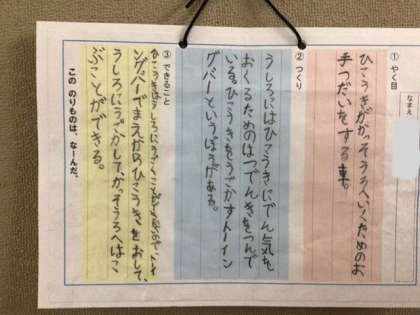 なまえ
① やく目
ひこうきがかっそうろへいくためのお
手つだいをする車。
② つくり
うしろにはひこうきにでん気を
おくるためのはつでんきをつんで
いる。ひこうきをうごかすトーイン
グバーというぼうがある。
③ できること
ングバーでまえからひこうきをおして、
うしろにうごかして、かっそうろへはこ
ぶことができる。
この のりものは、なーんだ。